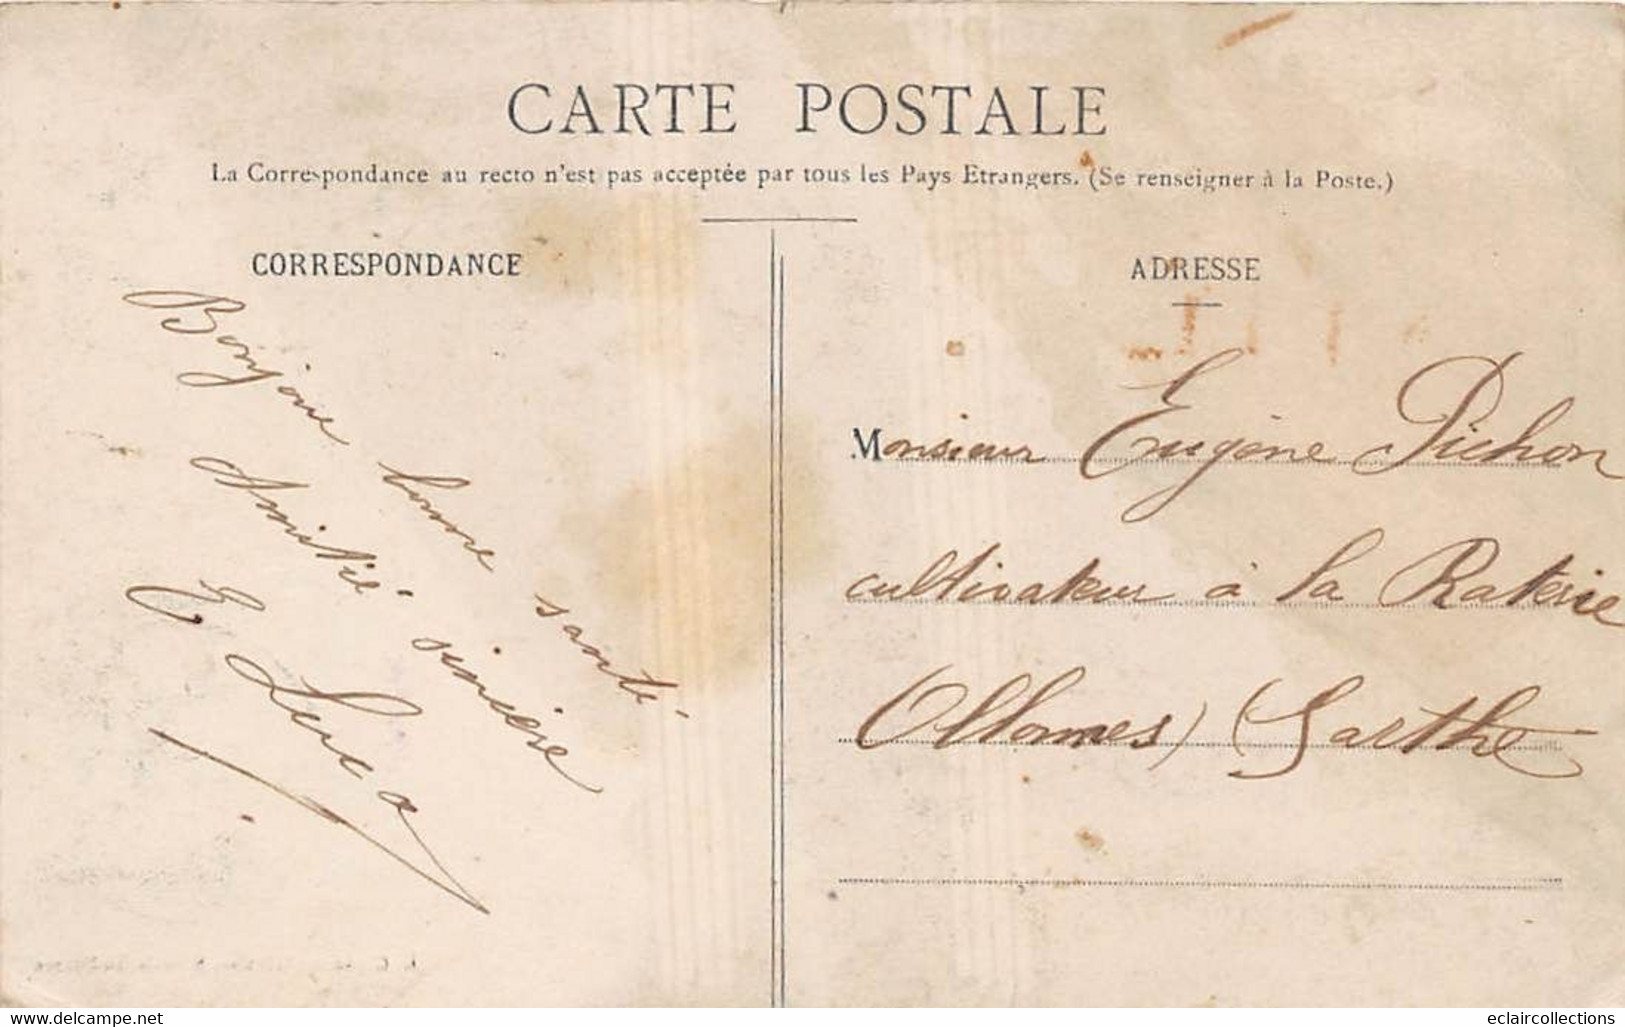 CARTE POSTALE
La Correspondance au recto n'est pas acceptée par tous les Pays Etrangers. (Se renseigner à la Poste.)
CORRESPONDANCE
Bonjour bonne santé
Amitié sincère
E Luca
ADRESSE
Monsieur Eugène Pichon
cultivateur à la Raterie
Ollomes) (Sarthe
www.delcampe.net
eclaircollections